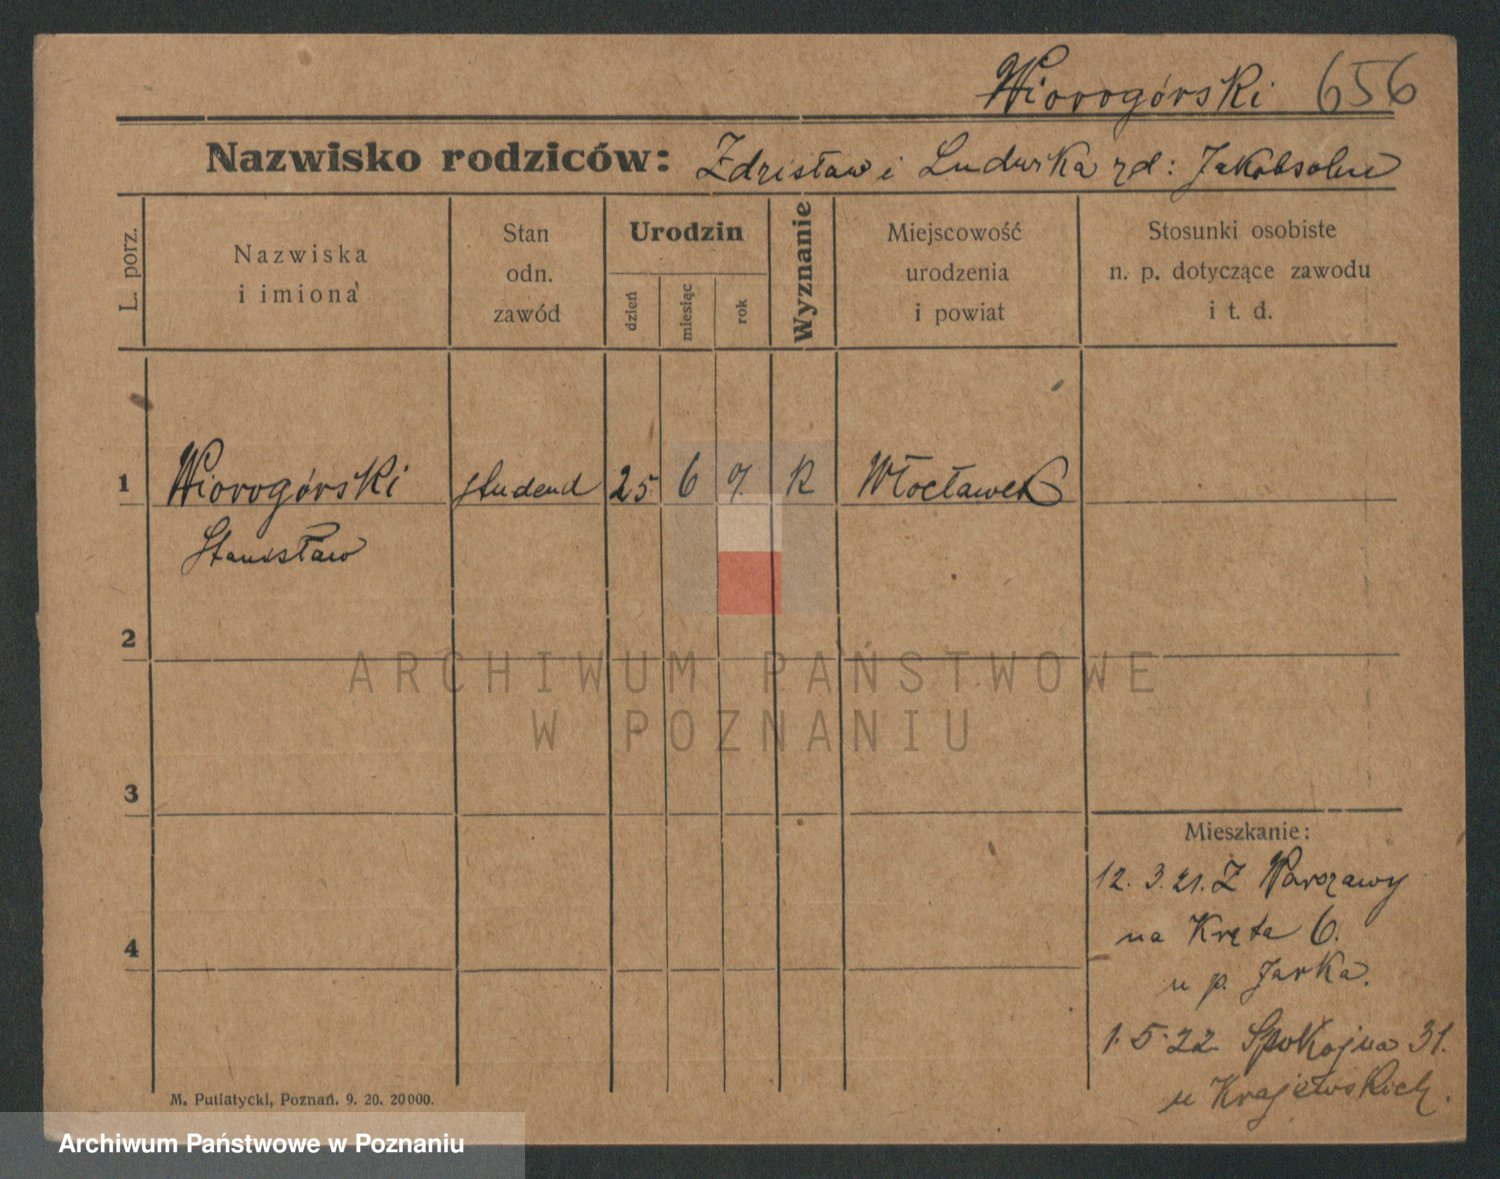 Wiorogórski 656
Nazwisko rodziców: Zdzisław i Ludwika zd: Jakobsohn
L. porz.
Nazwiska
i imiona
Stan
odn.
zawód
Urodzin
dzień
miesiąc
rok
Wyznanie
Miejscowość
urodzenia
i powiat
Stosunki osobiste
n. p. dotyczące zawodu
i t. d.
1 Wiorogórski studend 25 6 R Włocławek
Stanisław
2
ARCHIWUM PAŃSTWOWE
W POZNANIU
3
Mieszkanie:
12. 3. 21. Z Warszawy
na Kręta 6.
u p. Jarka.
4
1. 5. 22. Spokojna 31.
u Krajewskich.
M. Putiatycki, Poznań. 9. 20. 20000.
Archiwum Państwowe w Poznaniu